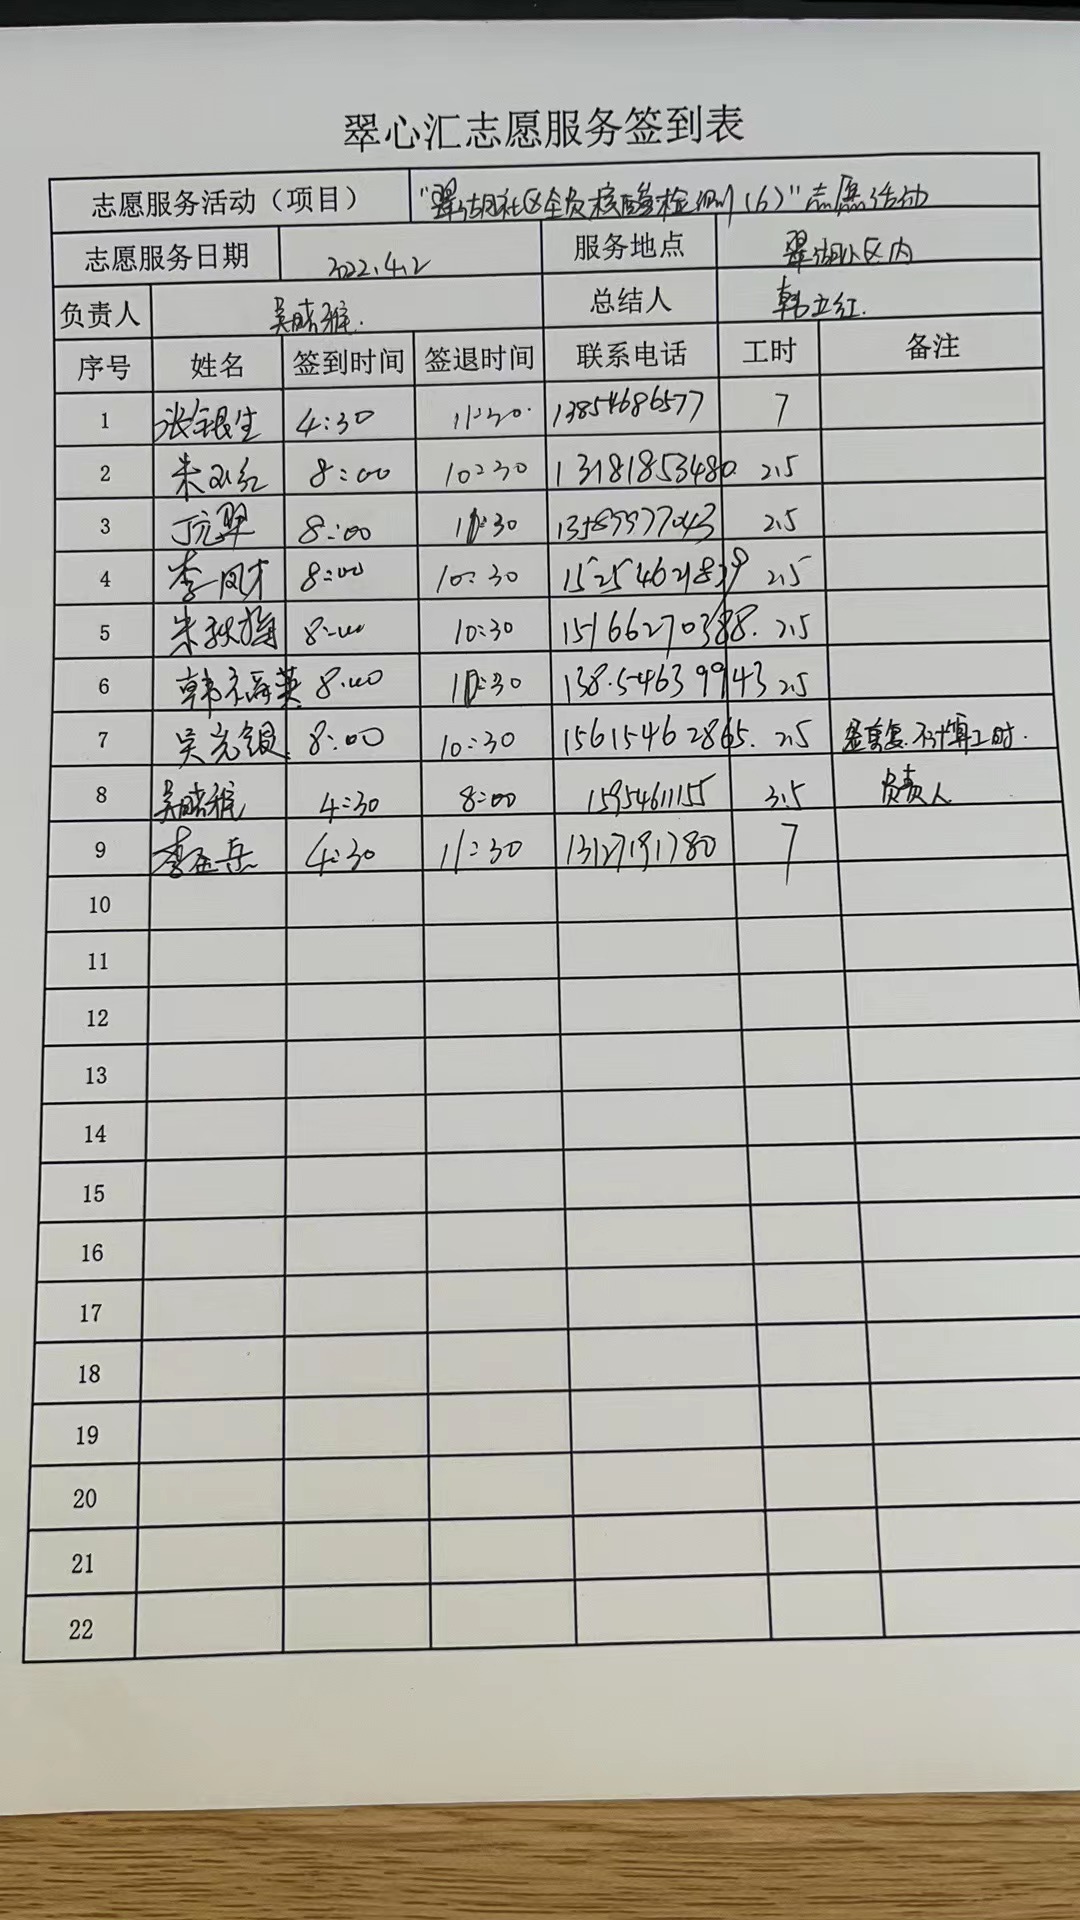 翠心汇志愿服务签到表
志愿服务活动（项目） “翠湖社区全员核酸检测（6）”志愿活动
志愿服务日期 2022.4.2 服务地点 翠湖小区内
负责人 吴晓雅. 总结人 韩立红.
序号 姓名 签到时间 签退时间 联系电话 工时 备注
1 张银生 4:30 11:30. 13854686577 7
2 朱 红 8:00 10:30 13181853480 2.5
3 丁元翠 8:00 10:30 13589977043 2.5
4 李凤才 8:00 10:30 15254621839 2.5
5 朱秋梅 8:00 10:30 15166270388. 2.5
6 韩 英 8:00 10:30 13854639943 2.5
7 吴克银 8:00 10:30 15615462865. 2.5 重复.不计算工时.
8 吴晓雅 4:30 8:00 15954611155 3.5 负责人
9 李 岳 4:30 11:30 13127191780 7
10
11
12
13
14
15
16
17
18
19
20
21
22